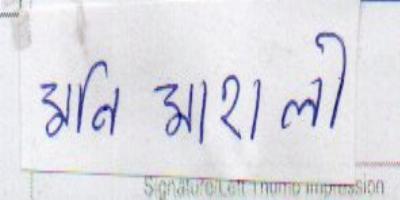 মনি মাহালী
Signature/Left Thumb Impression